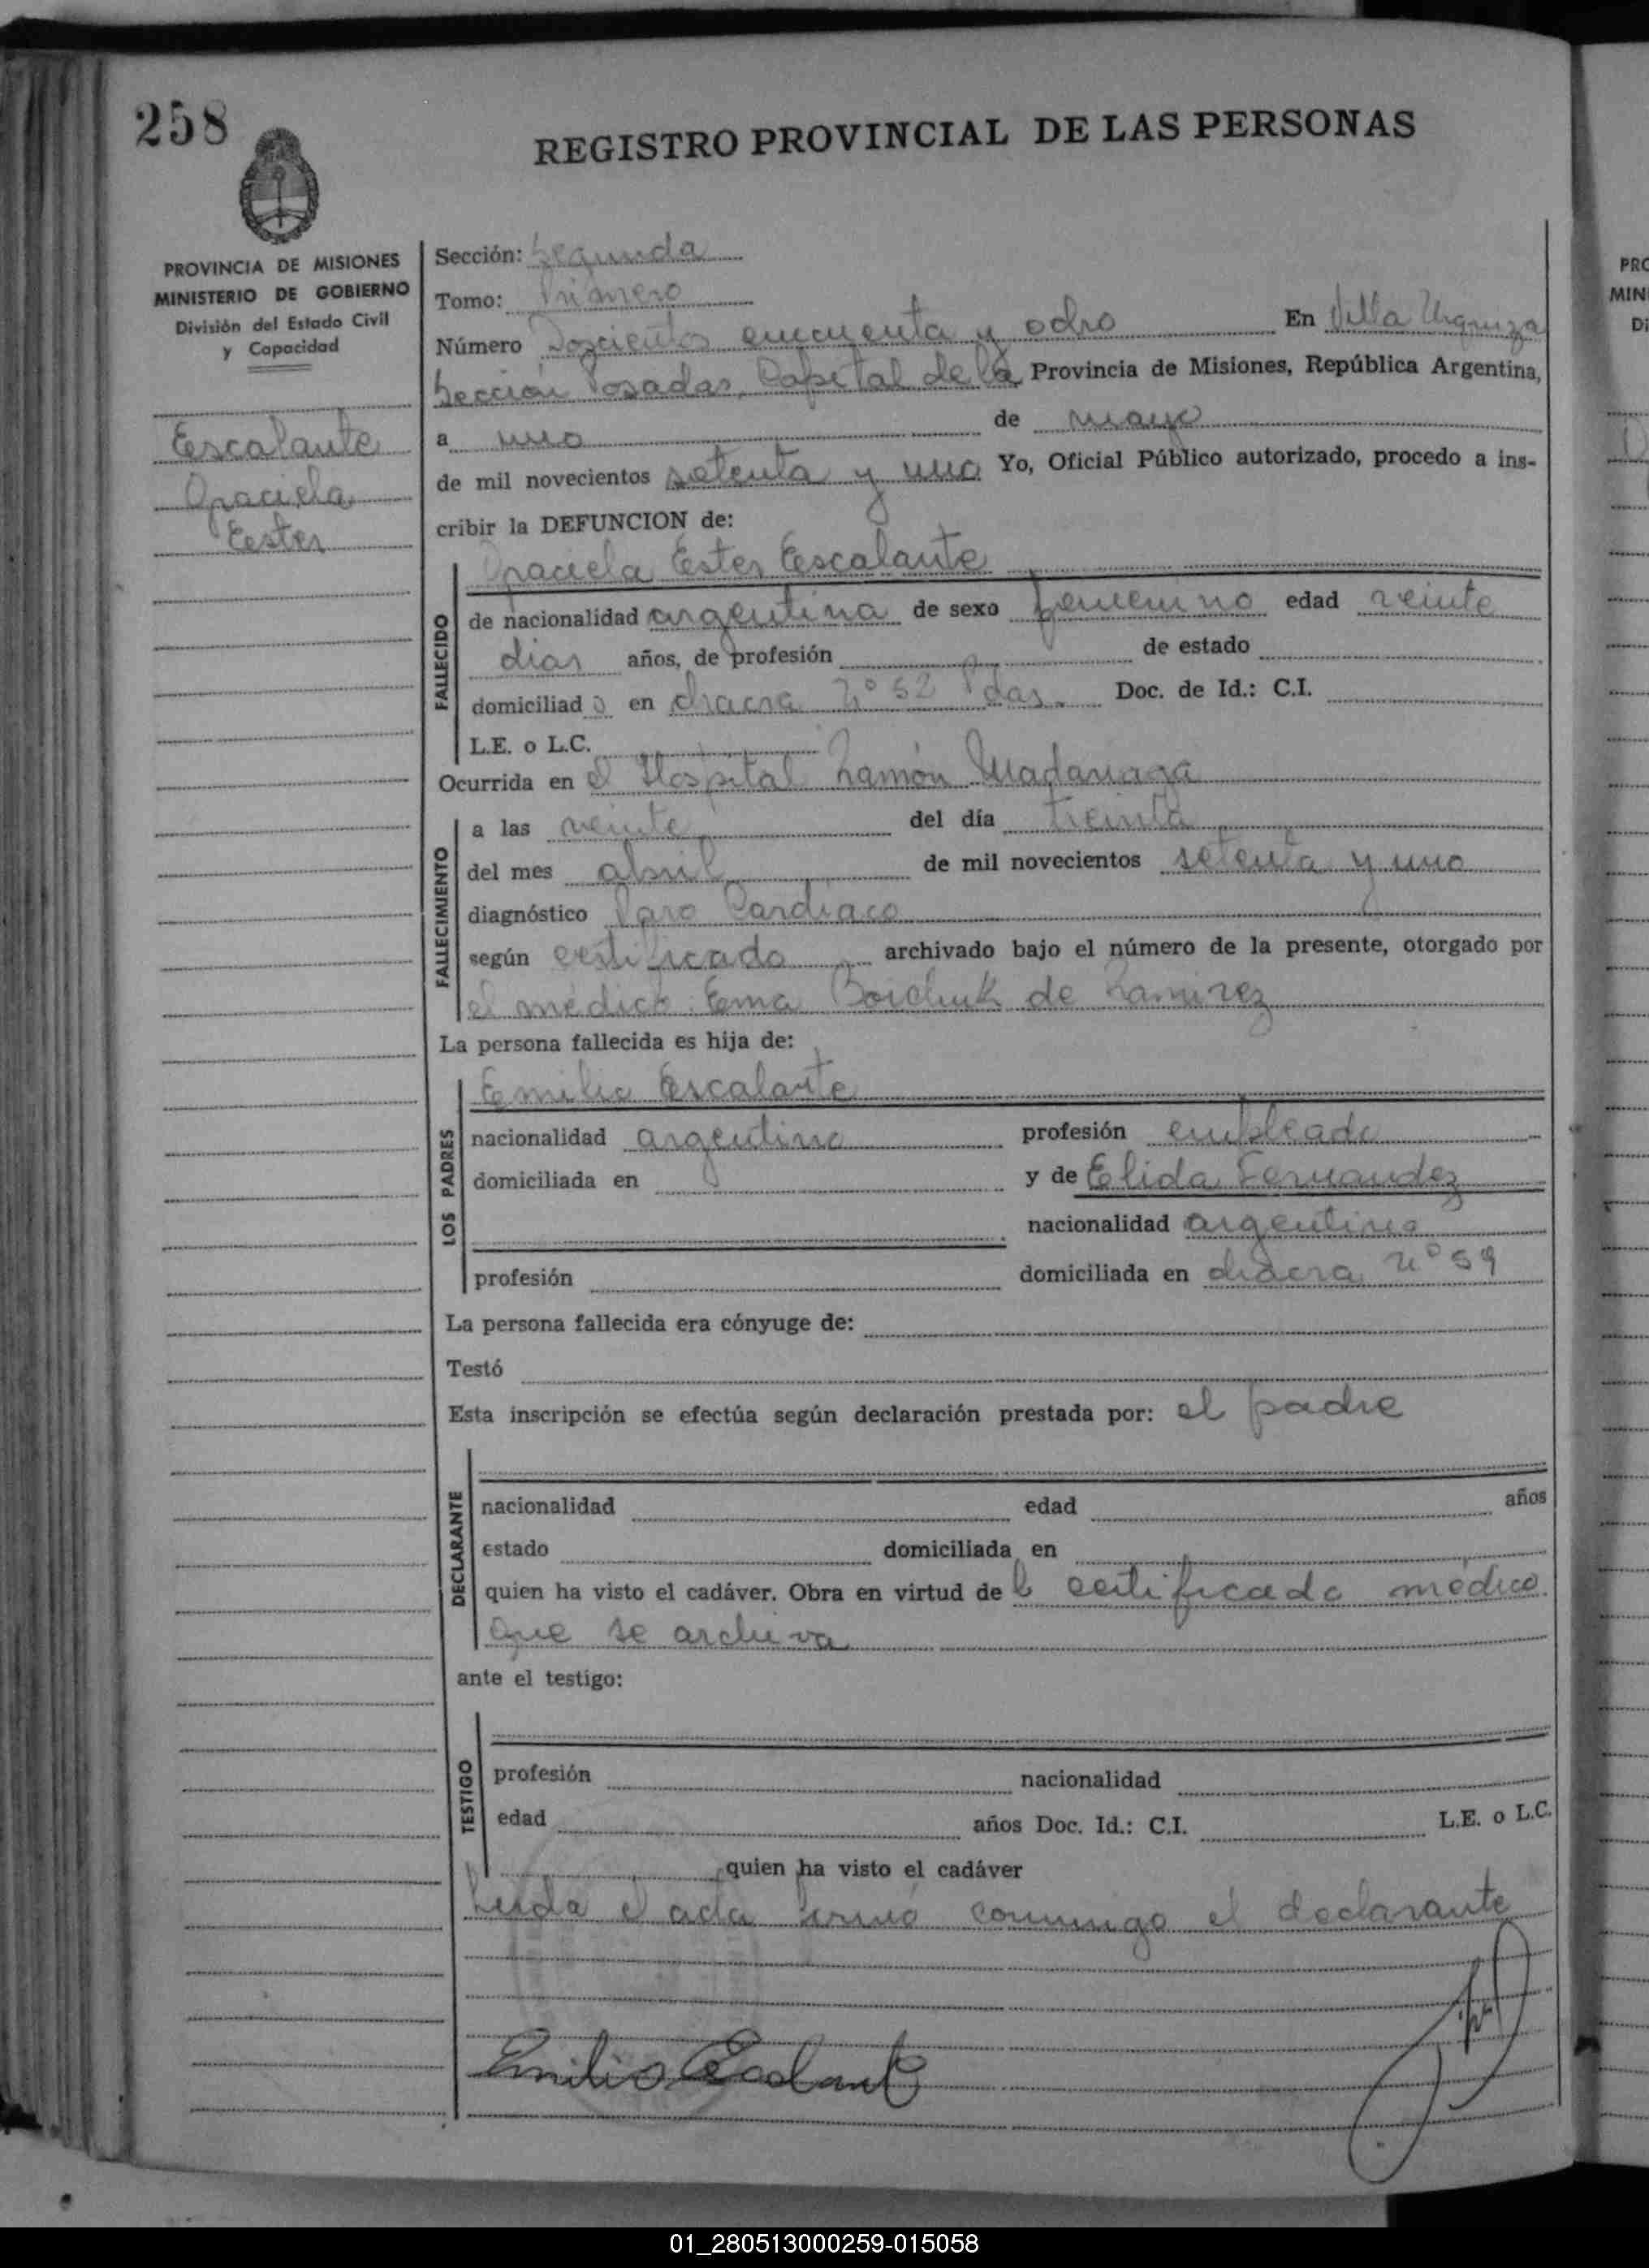 258
REGISTRO PROVINCIAL DE LAS PERSONAS
PROVINCIA DE MISIONES
MINISTERIO DE GOBIERNO
División del Estado Civil
y Capacidad
Escalante
Graciela
Ester
Sección: Segunda
Tomo: Primero
Número Doscientos cincuenta y ocho En Villa Urquiza
Sección Posadas, Capital de la Provincia de Misiones, República Argentina,
a uno de mayo
de mil novecientos setenta y uno Yo, Oficial Público autorizado, procedo a ins-
cribir la DEFUNCION de:
Graciela Ester Escalante
FALLECIDO
de nacionalidad argentina de sexo femenino edad veinte
dias años, de profesión de estado
domiciliad o en chacra Nº 52 Pdas. Doc. de Id.: C.I.
L.E. o L.C.
Ocurrida en el Hospital Ramón Madariaga
FALLECIMIENTO
a las veinte del día treinta
del mes abril de mil novecientos setenta y uno
diagnóstico Paro Cardiaco
según certificado archivado bajo el número de la presente, otorgado por
el médico: Ema Boichuk de Ramirez
La persona fallecida es hija de:
LOS PADRES
Emilio Escalante
nacionalidad argentino profesión empleado
domiciliada en y de Elida Fernandez
nacionalidad argentina
profesión domiciliada en chacra nº 59
La persona fallecida era cónyuge de:
Testó
Esta inscripción se efectúa según declaración prestada por: el padre
DECLARANTE
nacionalidad edad años
estado domiciliada en
quien ha visto el cadáver. Obra en virtud de l certificado médico
que se archiva
ante el testigo:
TESTIGO
profesión nacionalidad
edad años Doc. Id.: C.I. L.E. o L.C.
quien ha visto el cadáver
Leida el acta firmó conmigo el declarante
Emilio Escalante
PRO
MIN
Di
01_280513000259-015058